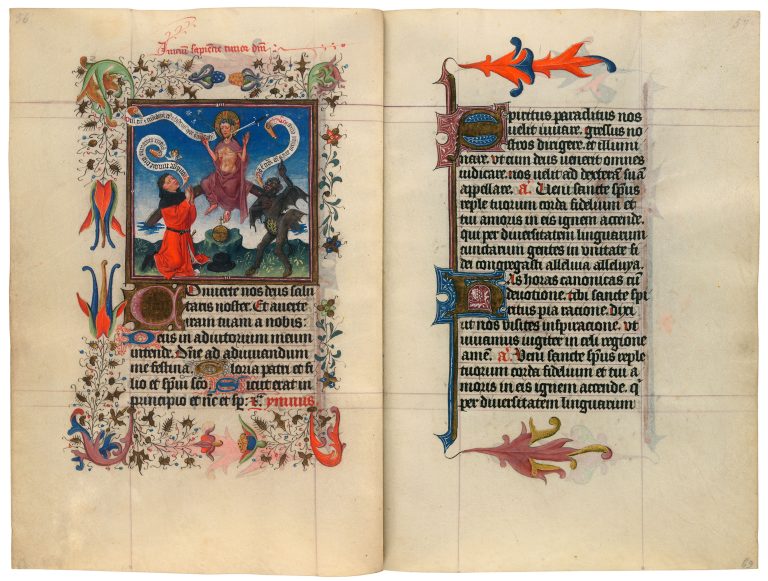 36
Iniciu sapiencie timor dni
Conuerte nos deus salu
taris noster. Et auerte
iram tuam a nobis:
Deus in adiutorium meum
intende. Dne ad adiuuandum
me festina. Gloria patri et fi
lio et spui sco Sicut erat in
principio et nc et sp: ymnus
57
Spiritus paraclitus nos
uelit iuuare. gressus no
stros dirigere et illumi
nare. ut cum deus uenerit omnes
iudicare. nos uelit ad dexteram sua
appellare. a. Ueni sancte spus
reple tuorum corda fidelium et
tui amoris in eis ignem accende.
qui per diuersitatem linguarum
cunctarum gentes in unitate fi
dei congregasti alleluya alleluya.
Has horas canonicas cu
deuotione. tibi sancte spi
ritus pia racione. dixi
ut nos uisites inspiracione. ut
uiuamus iugiter in celi regione
ame. a. Ueni sancte spus reple
tuorum corda fidelium et tui a
moris in eis ignem accende. q
per diuersitatem linguarum
69